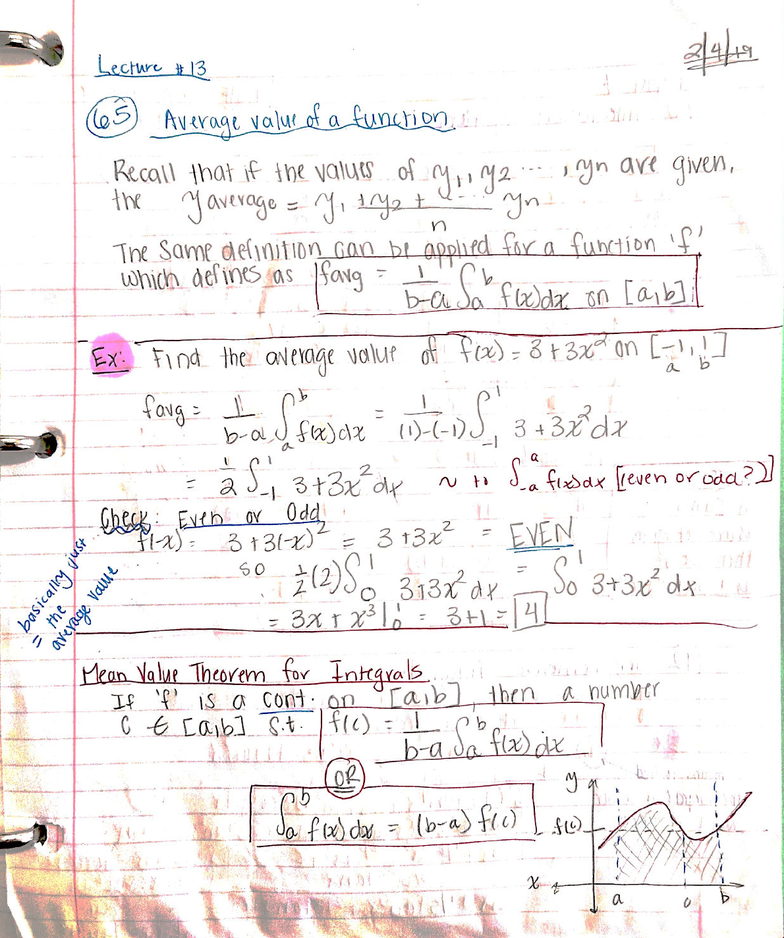 2/4/19
Lecture #13
6.5 Average value of a function
Recall that if the values of y₁, y₂ ..., yn are given,
the y average = y₁ + y₂ + ... yn / n
The same definition can be applied for a function 'f'
which defines as favg = 1/(b-a) ∫ₐᵇ f(x)dx on [a,b]
Ex: Find the average value of f(x) = 3+3x² on [-1,1]
a b
favg = 1/(b-a) ∫ₐᵇ f(x)dx = 1/((1)-(-1)) ∫₋₁¹ 3+3x²dx
= 1/2 ∫₋₁¹ 3+3x²dx ~ to ∫₋ₐᵃ f(x)dx [(even or odd?)]
Check: Even or Odd
f(-x) = 3+3(-x)² = 3+3x² = EVEN
so 1/2(2)∫₀¹ 3+3x²dx = ∫₀¹ 3+3x²dx
= 3x + x³|₀¹ = 3+1 = 4
basically just
= the
average value
Mean Value Theorem for Integrals
If 'f' is a cont. on [a,b], then a number
C ∈ [a,b] s.t. f(c) = 1/(b-a) ∫ₐᵇ f(x)dx
OR
∫ₐᵇ f(x)dx = (b-a) f(c)
y
f(c)
x
a c b